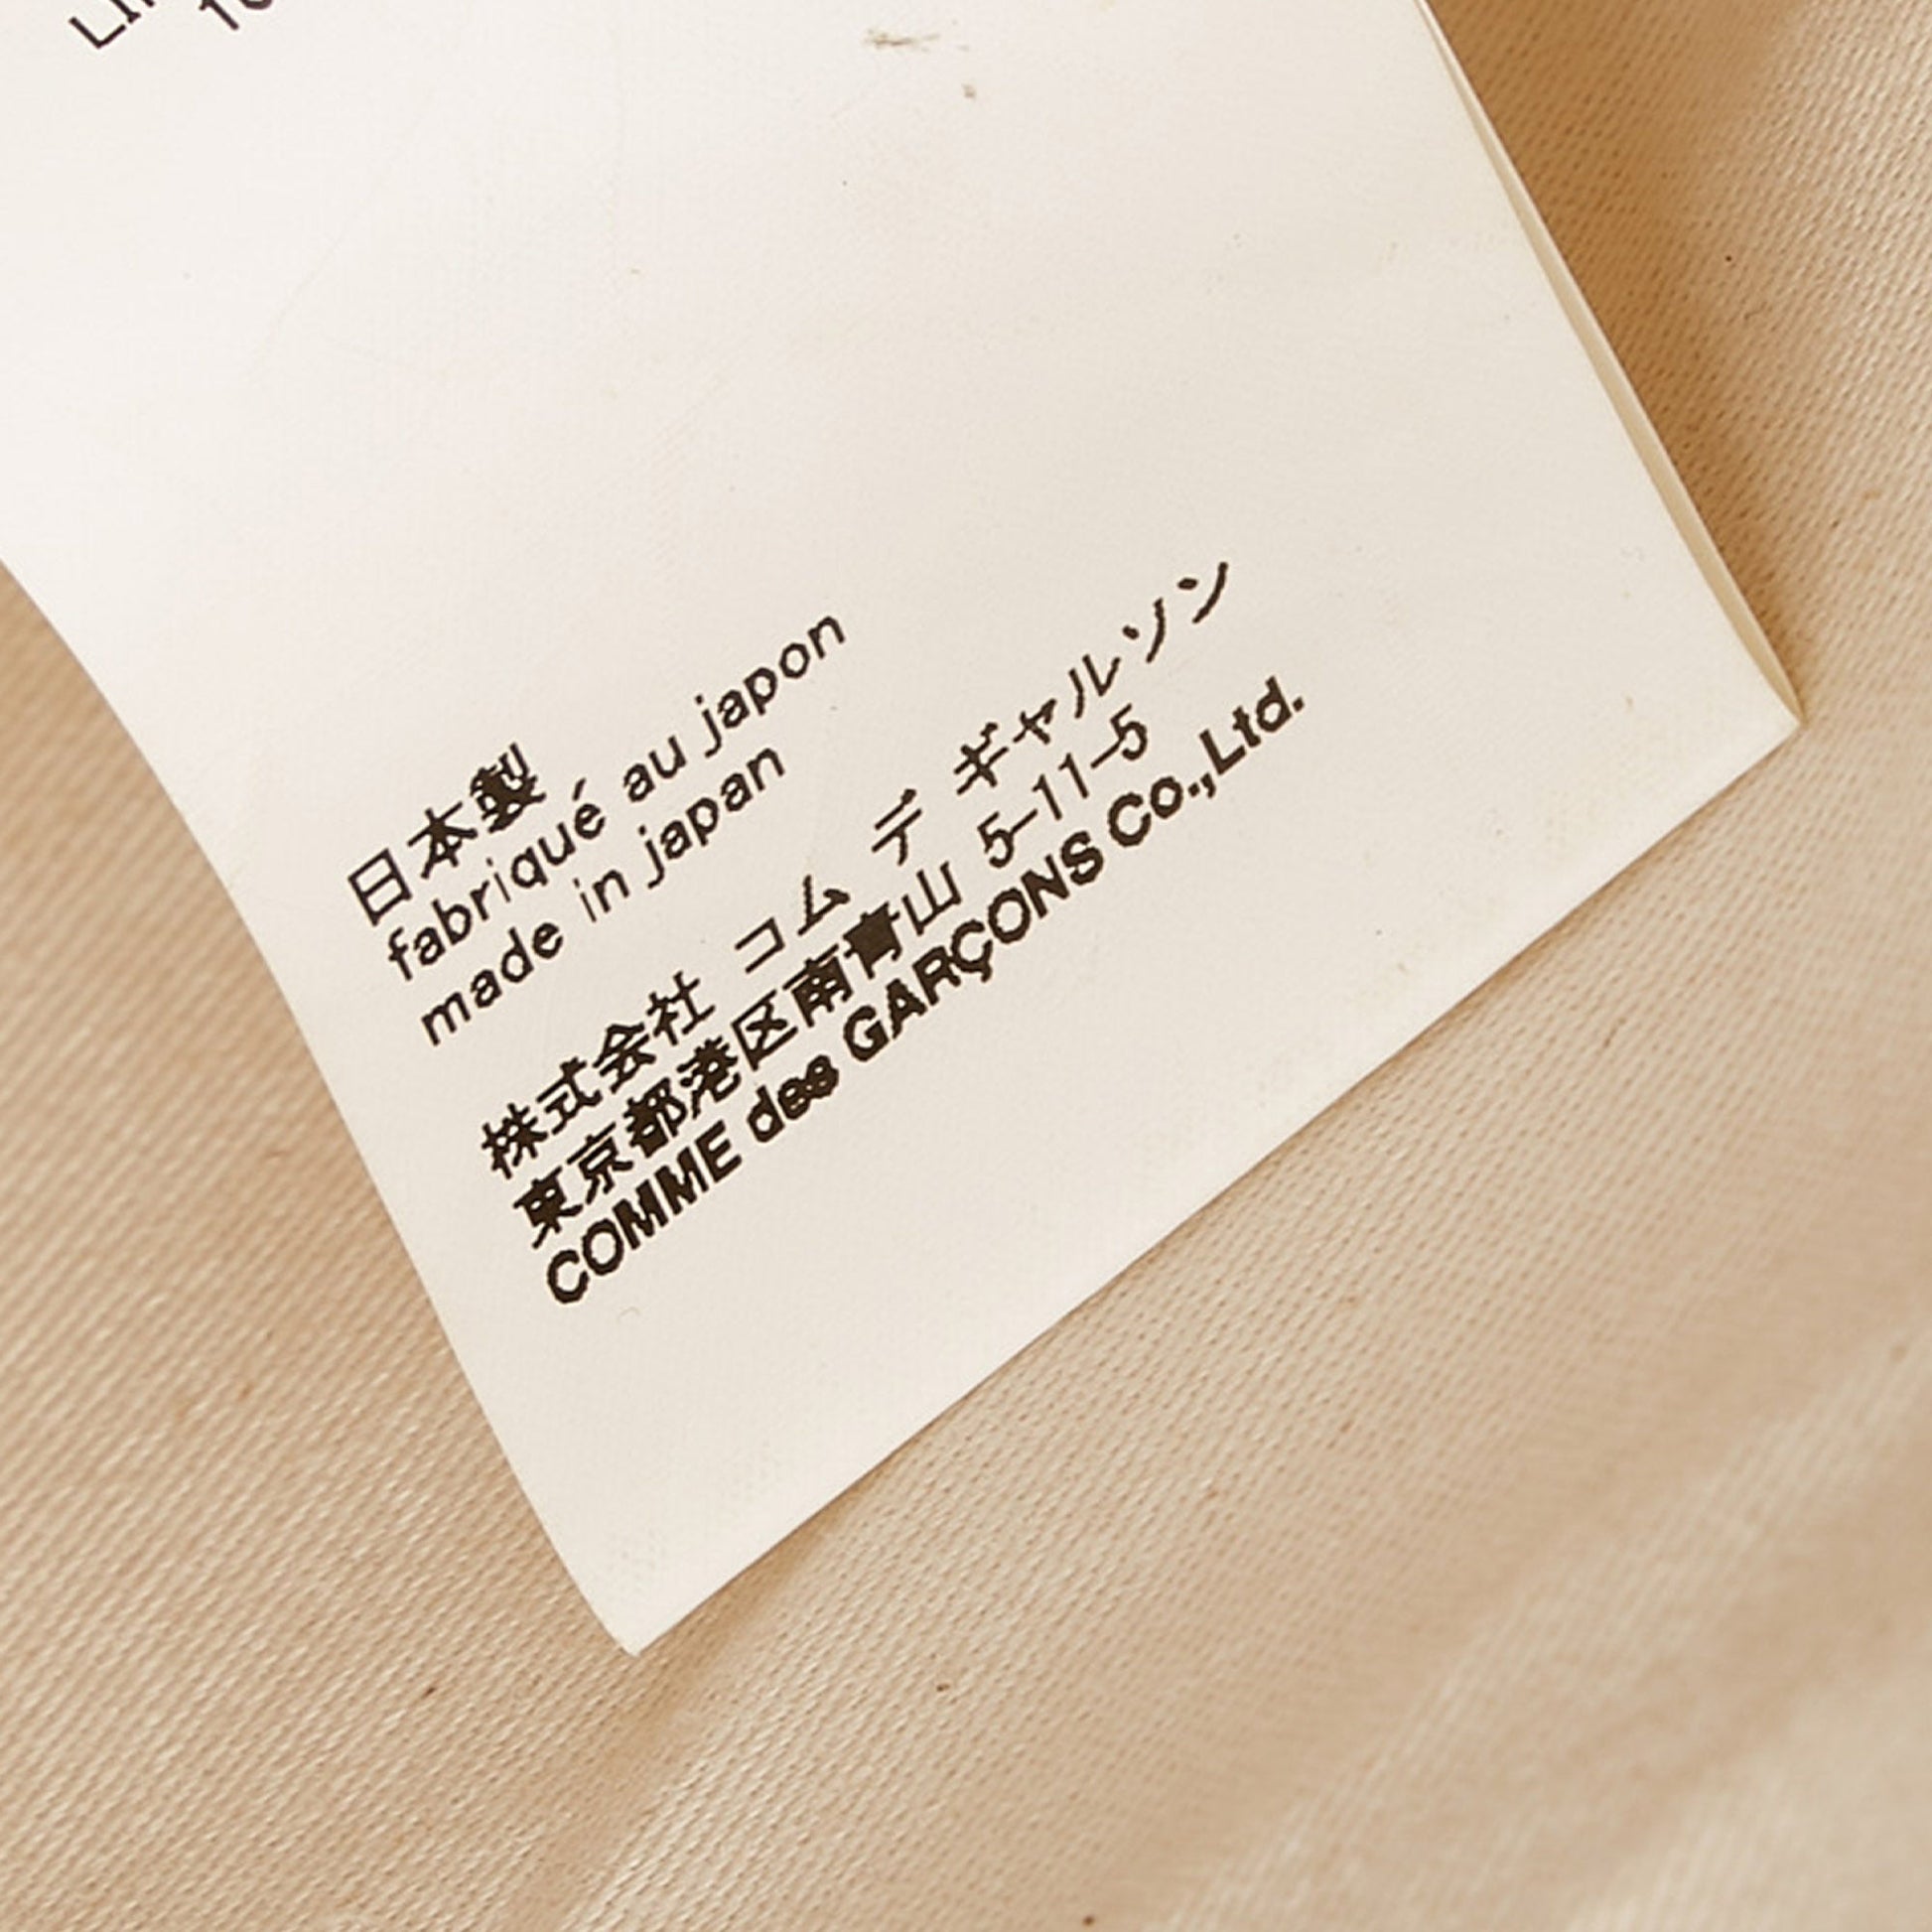 日本製
fabriqué au japon
made in japan
株式会社 コム デ ギャルソン
東京都港区南青山 5-11-5
COMME des GARÇONS Co.,Ltd.